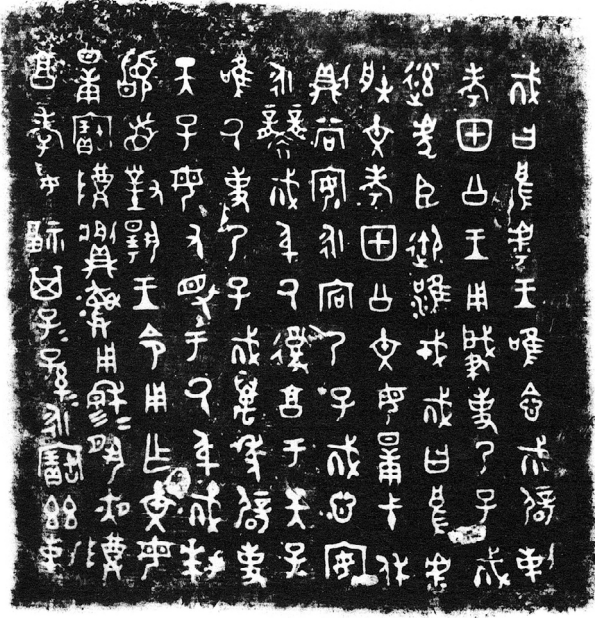 𢦚曰烏虖王唯念𢦚辟剌
考甲公王用肇事乃子𢦚
率虎臣御淮戎𢦚曰烏虖
朕文考甲公文母日庚弋休
則尚安永宕乃子𢦚心安
永襲𢦚身厥復享于天子
唯厥事乃子𢦚萬年辟事
天子毋有眈于厥身𢦚拜
稽首對揚王令用作文母
日庚寶尊彝用穆夙夜尊
享孝妥福其子子孫孫永寶茲剌